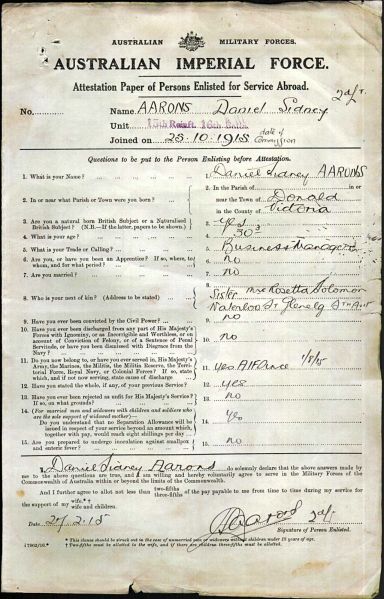 AUSTRALIAN MILITARY FORCES.
AUSTRALIAN IMPERIAL FORCE.
Attestation Paper of Persons Enlisted for Service Abroad.
No. Name AARONS Daniel Sidney 2d/Lt.
Unit 15th Reinft. 16th Battn.
Joined on 25.10.1915 date of Commission
Questions to be put to the Person Enlisting before Attestation.
1. What is your Name? 1. Daniel Sidney AARONS
2. In or near what Parish or Town were you born? 2. In the Parish of in or
near the Town of Donald
in the County of Victoria
3. Are you a natural born British Subject or a Naturalised
British Subject? (N.B.—If the latter, papers to be shown.) 3. yes
4. What is your age? 4. 30
5. What is your Trade or Calling? 5. Business Manager
6. Are you, or have you been an Apprentice? If so, where, to
whom, and for what period? 6. no
7. Are you married? 7. no
8. Who is your next of kin? (Address to be stated) 8. Sister Mrs Rosetta Solomon
Waterloo St Glenelg Sth Aust
9. Have you ever been convicted by the Civil Power? 9. no
10. Have you ever been discharged from any part of His Majesty's
Forces with Ignominy, or as Incorrigible and Worthless, or
on account of Conviction of Felony, or of a Sentence of Penal
Servitude, or have you been dismissed with Disgrace from the
Navy? 10. no
11. Do you now belong to, or have you ever served in, His Majesty's
Army, the Marines, the Militia, the Militia Reserve, the Territorial
Force, Royal Navy, or Colonial Forces? If so, state
which, and if not now serving, state cause of discharge 11. yes AIF since 1/5/15
12. Have you stated the whole, if any, of your previous Service? 12. yes
13. Have you ever been rejected as unfit for His Majesty's Service?
If so, on what grounds? 13. no
14. (For married men and widowers with children and soldiers who
are the sole support of widowed mother)—
Do you understand that no Separation Allowance will be
issued in respect of your service beyond an amount which,
together with pay, would reach eight shillings per day? 14. yes
15. Are you prepared to undergo inoculation against smallpox
and enteric fever? 15. no
I, Daniel Sidney Aarons do solemnly declare that the above answers made by
me to the above questions are true, and I am willing and hereby voluntarily agree to serve in the Military Forces of the
Commonwealth of Australia within or beyond the limits of the Commonwealth.
And I further agree to allot not less than two-fifths three-fifths of the pay payable to me from time to time during my service for
the support of my wife.*† wife and children.
Date
Aarons 2d/Lt
Signature of Person Enlisted.
* This clause should be struck out in the case of unmarried men or widowers without children under 18 years of age.
† Two-fifths must be allotted to the wife, and if there are children three-fifths must be allotted.